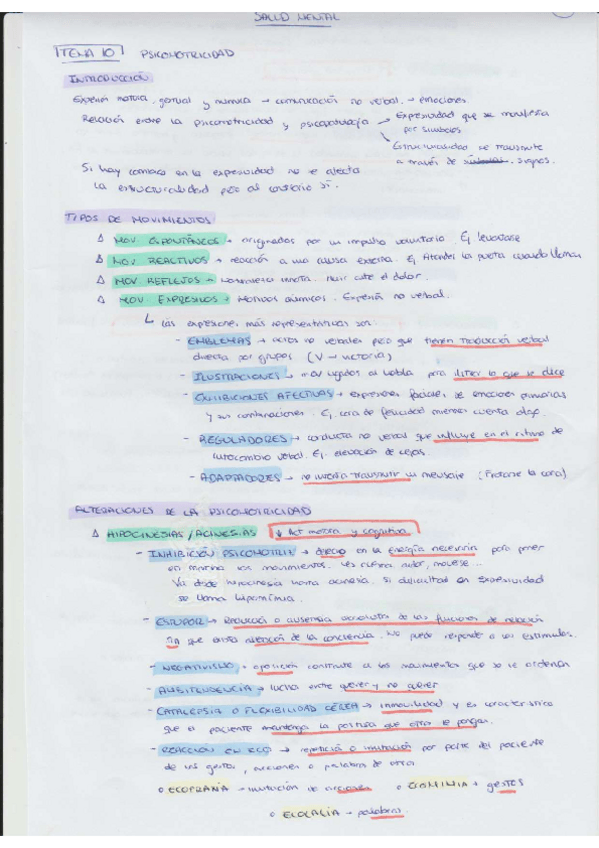 SALUD MENTAL
TEMA 10 PSICOMOTRICIDAD
INTRODUCCIÓN
motora, gestual y mímica → comunicación no verbal → emociones
Relación entre la psicomotricidad y psicopatología → Expresividad que se manifiesta
por símbolos
Estructuralidad se transmite
a través de signos.
Si hay cambios en la expresividad no se afecta
la estructuralidad pero al contrario sí.
TIPOS DE MOVIMIENTOS
Δ MOV ESPONTÁNEOS → originados por un impulso voluntario. Ej levantarse
Δ MOV REACTIVOS → reacción a una causa externa. Ej Atender la puerta cuando llaman
Δ MOV REFLEJOS → innata. Huir ante el dolor.
Δ MOV EXPRESIVOS → Motivos anímicos. no verbal.
↳ Las expresiones más representativas son:
- EMBLEMAS → actos no verbales pero que tienen traducción verbal
directa por grupos (V → victoria)
- ILUSTRACIONES → mov ligados al habla para ilustrar lo que se dice
- EXHIBICIONES AFECTIVAS → expresiones faciales de emociones primarias
y sus combinaciones. Ej. cara de felicidad mientras cuenta algo.
- REGULADORES → conducta no verbal que influye en el ritmo de
intercambio verbal. Ej. elevación de cejas.
- ADAPTADORES → no intenta transmitir un mensaje (Frotarse la cara)
ALTERACIONES DE LA PSICOMOTRICIDAD
Δ HIPOCINESIAS / ACINESIAS ↓ Act motora y cognitiva
- INHIBICIÓN PSICOMOTRIZ → en la energía necesaria para poner
en marcha los movimientos. Les cuesta andar, moverse...
Va desde hipocinesia hasta acinesia. Si dificultad en Expresividad
se llama hipomimia.
- ESTUPOR → Reducción o ausencia absoluta de las funciones de relación
sin que exista alteración de la conciencia. No puede responder a los estímulos.
- NEGATIVISMO → oposición constante a los movimientos que se le ordenan
- AMBITENDENCIA → lucha entre querer y no querer
- CATALEPSIA O FLEXIBILIDAD CÉREA → inmovilidad y es característico
que el paciente mantenga la postura que otro le ponga.
- REACCIÓN EN ECO → repetición o imitación por parte del paciente
de los gestos, acciones o palabras de otros
o ECOPRAXIA → imitación de acciones o ECOMIMIA → gestos
o ECOLALIA → palabras